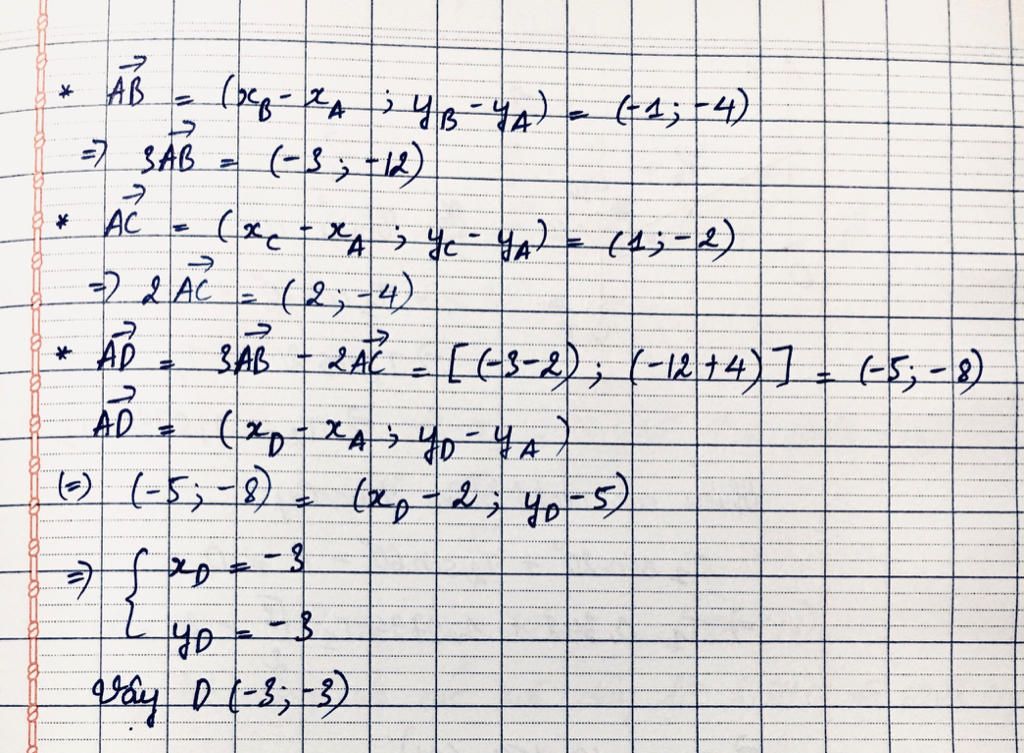 * \overrightarrow{AB} = (x_B - x_A ; y_B - y_A) = (-1; -4)
=> 3\overrightarrow{AB} = (-3 ; -12)
* \overrightarrow{AC} = (x_C - x_A ; y_C - y_A) = (1; -2)
=> 2\overrightarrow{AC} = (2; -4)
* \overrightarrow{AD} = 3\overrightarrow{AB} - 2\overrightarrow{AC} = [(-3-2) ; (-12+4)] = (-5; -8)
\overrightarrow{AD} = (x_D - x_A ; y_D - y_A)
(=) (-5; -8) = (x_D - 2 ; y_D - 5)
=> { x_D = -3
y_D = -3
Vậy D (-3; -3)